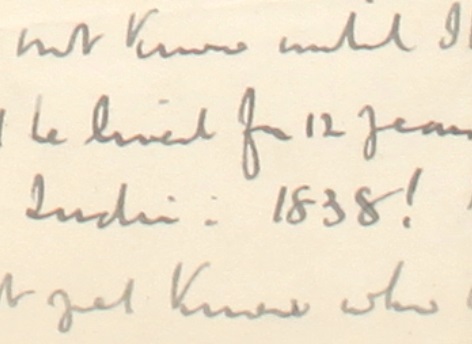 not know until I
he lived for 12 years
India: 1838!
yet know who